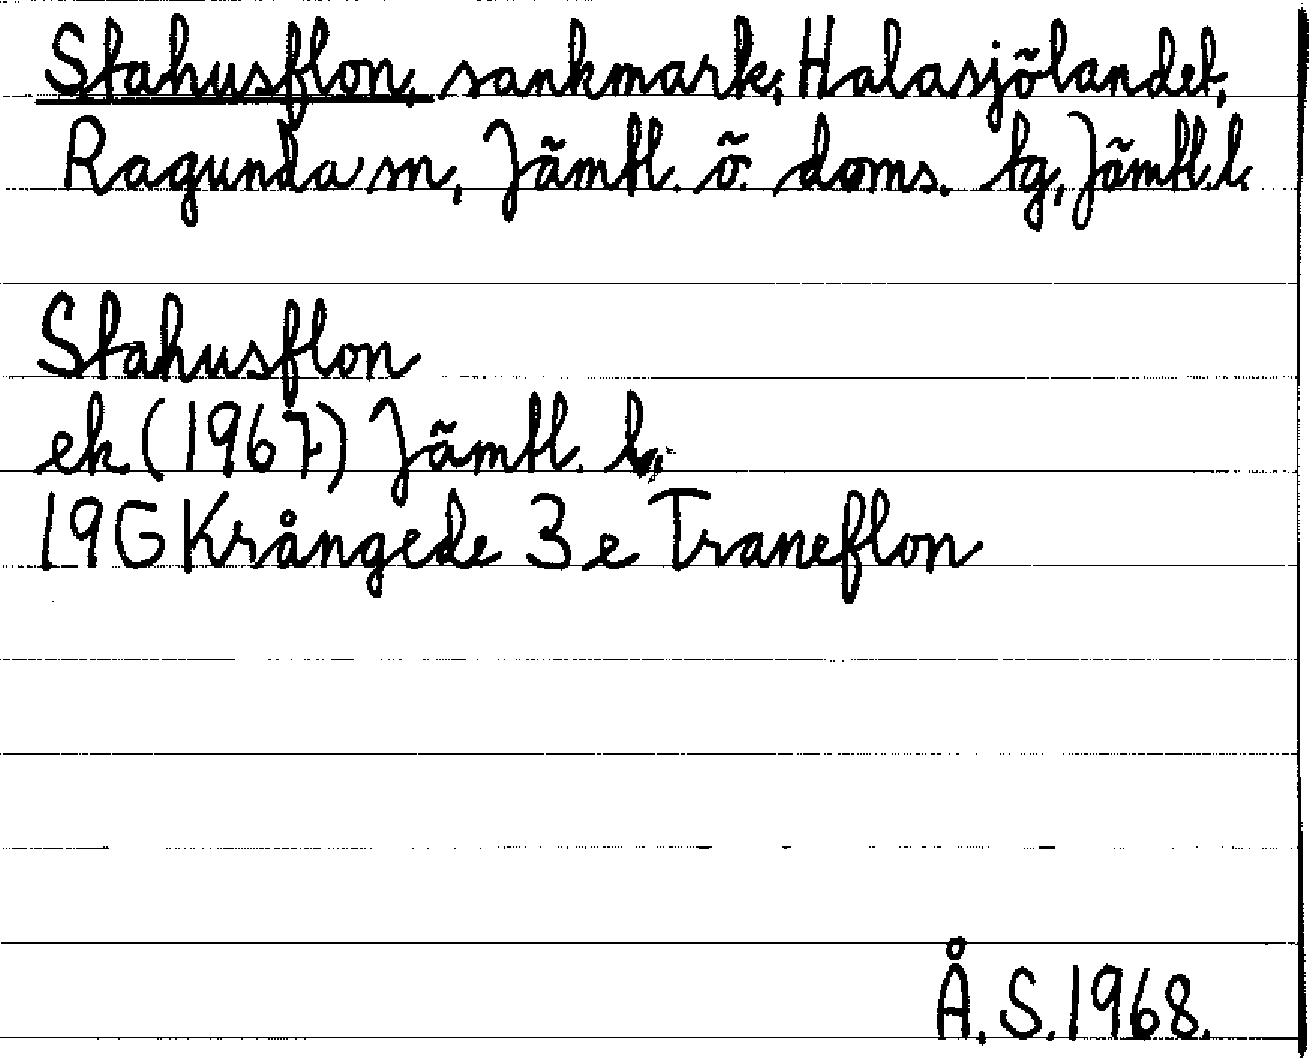 Stahusflon, sankmark, Halasjölandet,
Ragunda sn, Jämtl. ö. doms. tg, Jämtl.l.
Stahusflon
ek (1967) Jämtl. l.
19G Krångede 3e Traneflon
Å.S.1968.